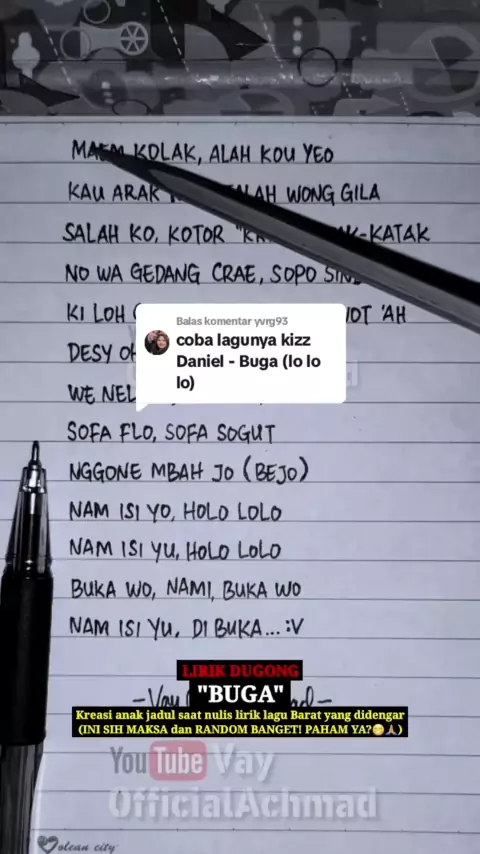 MAEM KOLAK, ALAH KOU YEO
KAU ARAK ALAH WONG GILA
SALAH KO, KOTOR -KATAK
NO WA GEDANG CRAE, SOPO
KI LOH 'AH
DESY
WE NEL
SOFA FLO, SOFA SOGUT
NGGONE MBAH JO (BEJO)
NAM ISI YO, HOLO LOLO
NAM ISI YU, HOLO LOLO
BUKA WO, NAMI, BUKA WO
NAM ISI YU, DI BUKA...:V
Balas komentar yvrg93
coba lagunya kizz
Daniel - Buga (lo lo
lo)
LIRIK DUGONG
"BUGA"
-Vay
Kreasi anak jadul saat nulis lirik lagu Barat yang didengar
(INI SIH MAKSA dan RANDOM BANGET! PAHAM YA?😋🙏)
YouTube Vay
OfficialAchmad
olean city